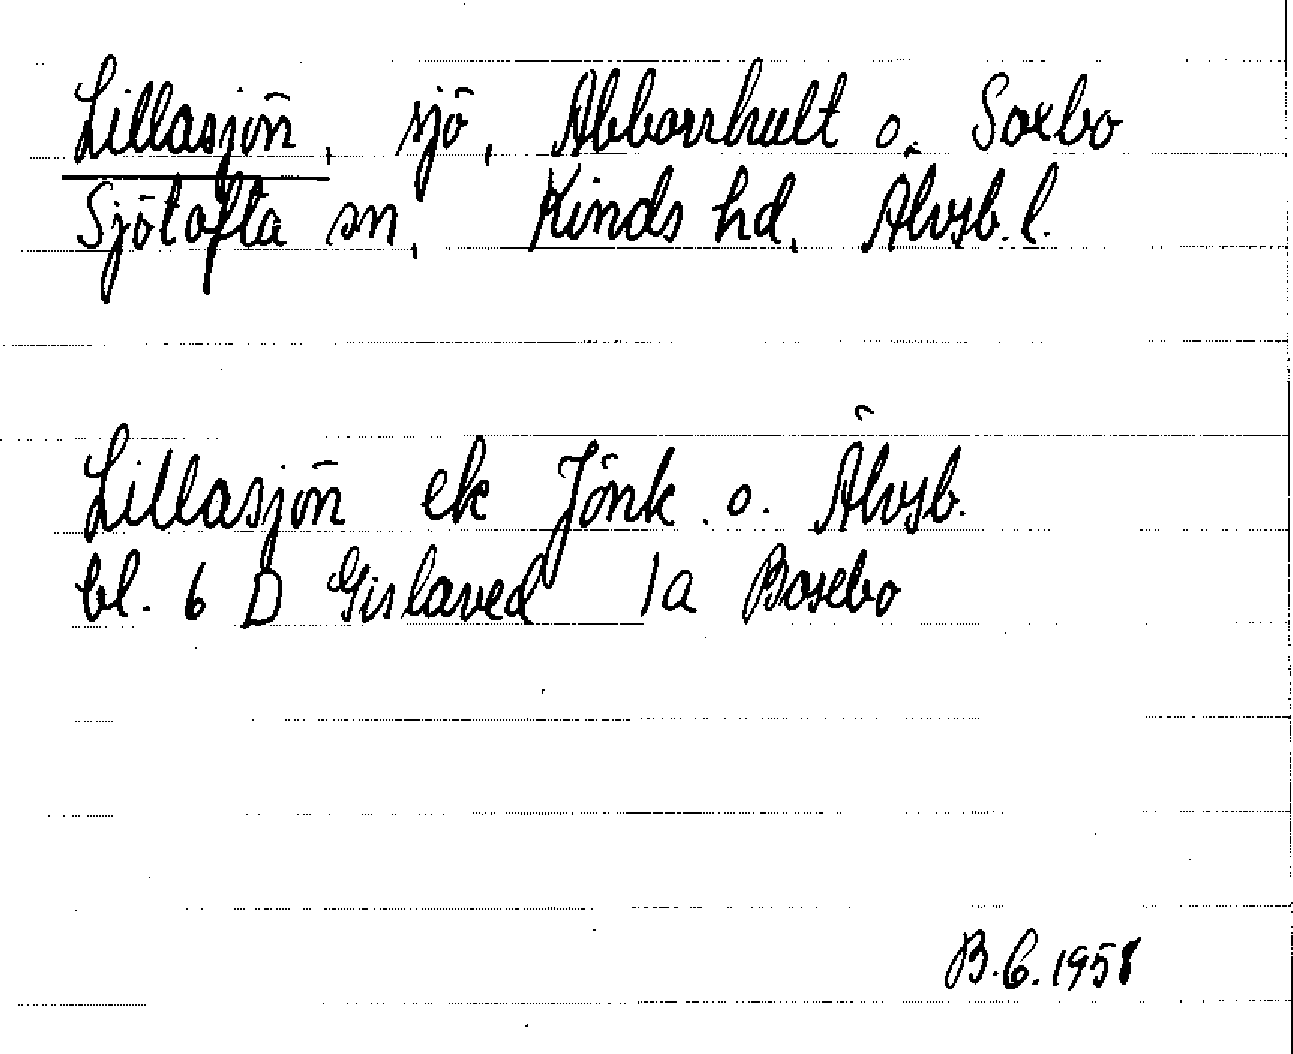 Lillasjön, sjö, Abborrhult o. Soxbo
Sjötofta sn, Kinds hd, Älvsb. l.
Lillasjön ek Jönk. o. Älvsb.
bl. 6 D Gislaved 1a Bosebo
B.G. 1958